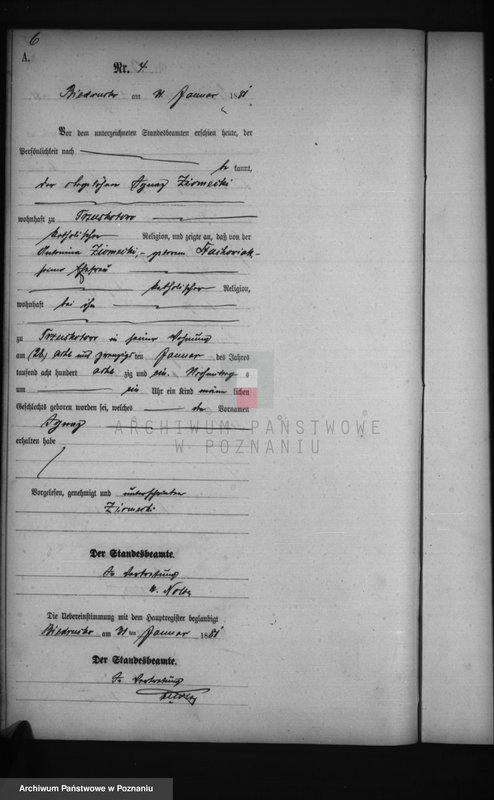 6
A.
Nr. 4
Biedrusko am 31 Januar 1881
Vor dem unterzeichneten Standesbeamten erschien heute, der
Persönlichkeit nach
be kannt,
der Ignaz Ziomecki
wohnhaft zu
katholischer Religion, und zeigte an, daß von der
Antonina Ziomecki, geborene
seiner Ehefrau
katholischer Religion,
wohnhaft bei ihm
zu in seiner Wohnung
am acht und zwanzigsten Januar des Jahres
tausend acht hundert acht zig und ein Nachmittags
um ein Uhr ein Kind männ lichen
Geschlechts geboren worden sei, welches den Vornamen
Ignaz
erhalten habe
Vorgelesen, genehmigt und unterschrieben
Ziomecki
Der Standesbeamte.
In Vertretung
Die Uebereinstimmung mit dem Hauptregister beglaubigt
Biedrusko am 31 ten Januar 1881
Der Standesbeamte.
In Vertretung
ARCHIWUM PAŃSTWOWE
W POZNANIU
Archiwum Państwowe w Poznaniu